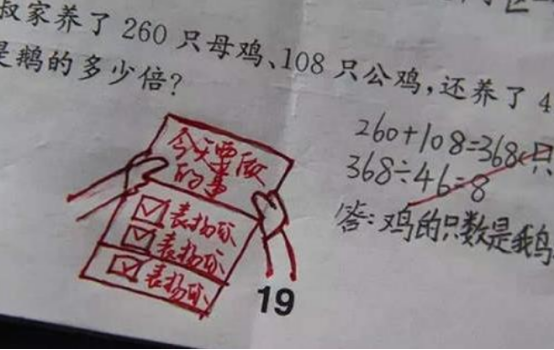 叔家养了 260 只母鸡、108 只公鸡,还养了 4
是鹅的多少倍?
260+108=368(只
368÷46=8
答:鸡的只数是我鸟
今天要做
的事
☑表扬你
☑表扬你
☑表扬你
19